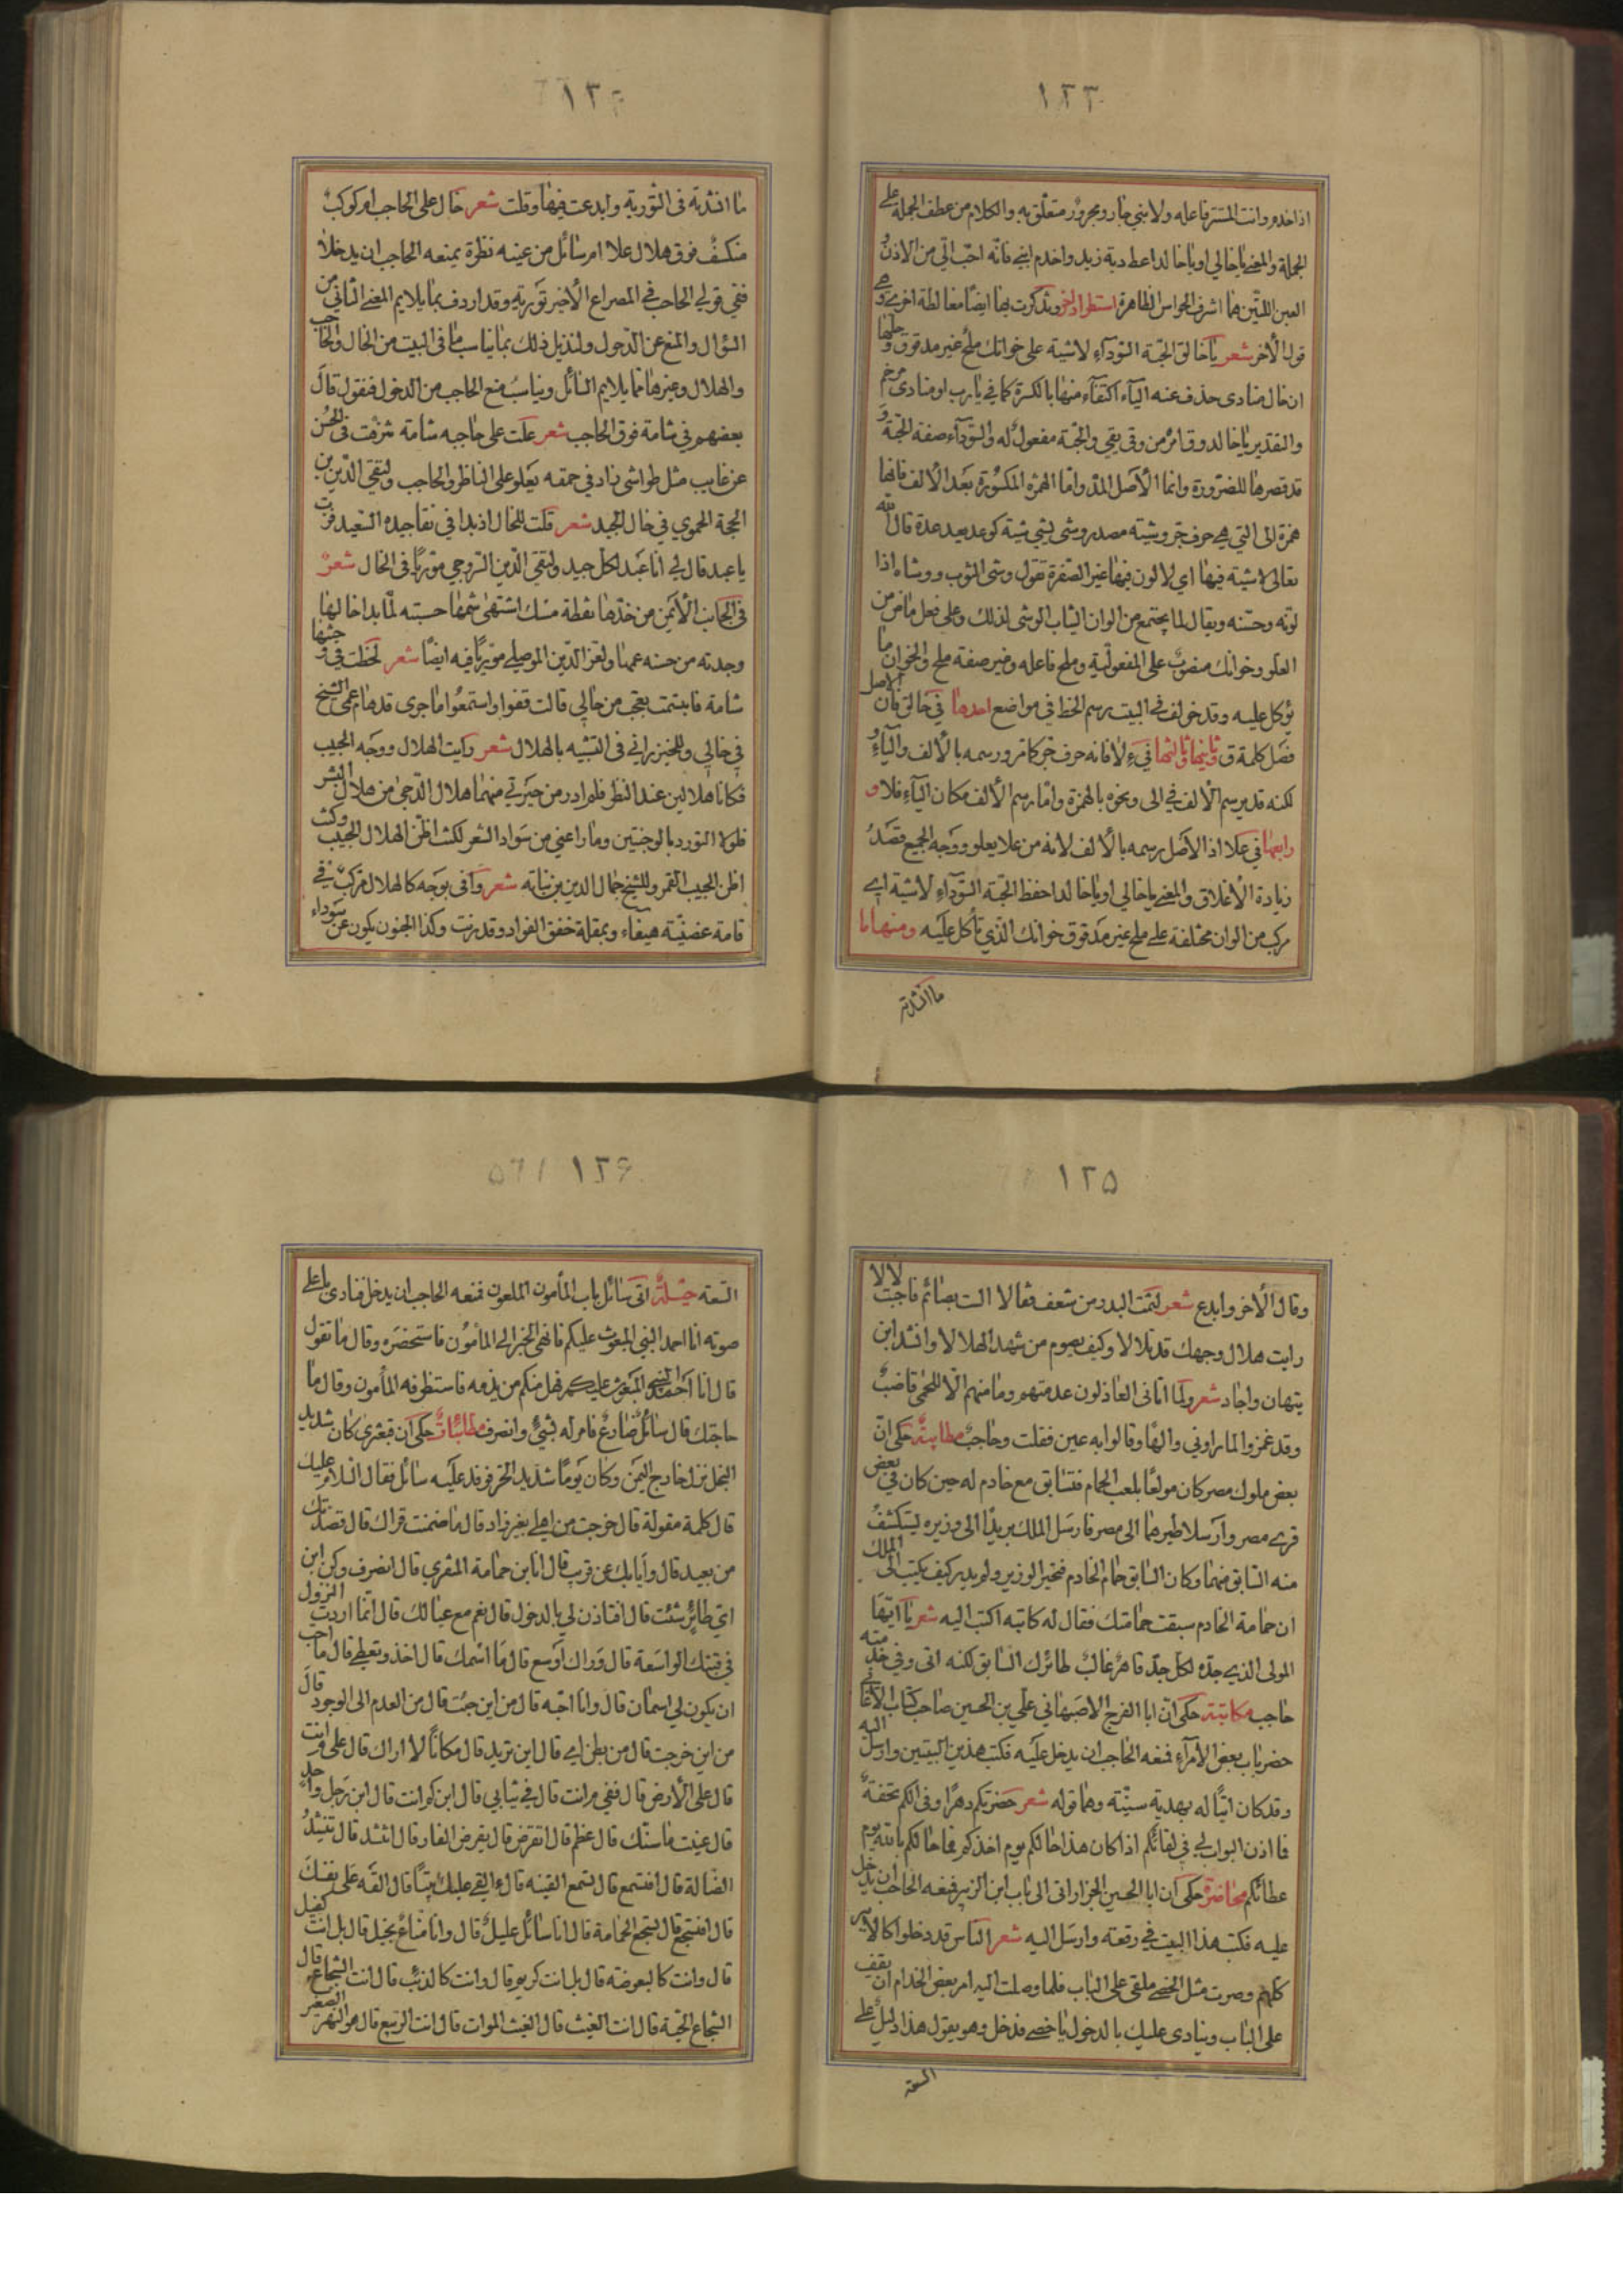 ١٢٣
اذا خدم وانت المستتر فاعله ولابني جار ومجرور متعلق به والكلام من عطف الجملة على
الجملة والمعنى يا خالي او يا خالد اعط دية زيد واخدم ابني فانه احب الي من الاذن و
العين اللتين هما اشرف الحواس الظاهرة استطراد اخر وتذكرت بهما ايضا مغالطة اخرى وهي
قول الآخر شعر يا خالق الجبة السوداء لاشية على خوانك ملح غير مدقوق وحلها
ان خال منادى حذف عنه الياء اكتفاء منها بالكسرة كما في يا رب او منادى مرخم
والتقدير يا خالد وق امر من وقى يقي والجبة مفعول له والسوداء صفة الجبة و
قد قصرها للضرورة وانما الأصل المد واما الهمزة المكسورة بعد الألف فانها
همزة الى التي هي حرف جر وشيته مصدر وشى يشي شية كوعد يعد عدة قال الله
تعالى لاشية فيها اي لا لون فيها غير الصفرة تقول وشى الثوب ووشاه اذا
لونه وحسنه ويقال لما يجتمع من الوان الثياب الوشى لذلك وعلى فعل ماض من
العلو وخوانك منصوب على المفعولية وملح فاعله وغير صفة ملح والخوان ما
يؤكل عليه وقد خولف في البيت رسم الخط في مواضع احدها في خالق فان الأصل
فصل كلمة ق وثانيها وثالثها في ء لا فانه حرف جر كما مر ورسمه بالألف والياء و
لكنه قد يرسم الألف في الى ونحوه بالهمزة واما رسم الألف مكان الياء فلا و
رابعها في علا اذ الأصل رسمه بالألف لانه من علا يعلو ووجه الجميع قصد
زيادة الأغلاق والمعنى يا خالي او يا خالد احفظ الجبة السوداء لاشية اي
مركب من الوان مختلفة على ملح غير مدقوق خوانك الذي تأكل عليه ومنها ما
ما انشدته
١٢٤
ما انشدته في التورية وابدعت فيها وقلت شعر خال على الحاجب ام كوكب
منكسف فوق هلال علا ام سائل من عينه نظرة يمنعه الحاجب ان يدخلا
ففي قولي الحاجب في المصراع الأخير تورية وقد اردف بما يلايم المعنى الثاني من
السؤال والمنع عن الدخول ولنذيل ذلك بما يناسب ما في البيت من الخال والحاجب
والهلال وغيرها مما يلايم السائل ويناسب منع الحاجب من الدخول فنقول قال
بعضهم في شامة فوق الحاجب شعر علت على حاجبه شامة شرفت في الحسن
عن غايب مثل طواشى زاد في حمقه يعلو على الناظر والحاجب ولتقي الدين بن
الحجة الحموي في خال الجيد شعر قلت للخال اذ بدا في نقا جيده السعيد فزت
يا عبد قال لي انا عبد لكل جيد ولتقي الدين السروجي موريا في الخال شعر
في الجانب الأيمن من خدها نقطة مسك اشتهى شمها حسبته لما بدا خالها
وجدته من حسنه عمها ولعز الدين الموصلي موريا فيه ايضا شعر لحظت في وجنتها
شامة فابتسمت بعجب من حالي قالت قفوا واستمعوا ما جرى قد هام عمى الشيخ
في خالي وللخبزراني في التشبيه بالهلال شعر رايت الهلال ووجه الحبيب
فكانا هلالين عند النظر فلم ادر من حيرتي منهما هلال الدجى من هلال البشر
فلولا التورد بالوجنتين وما راعني من سواد الشعر لكنت اظن الهلال الحبيب وكنت
اظن الحبيب القمر وللشيخ جمال الدين بن نباتة شعر وافى بوجه كالهلال مركب في
قامة غصنية هيفاء وبمقلة خفق الفواد وقد رنت وكذا الجفون يكون عن سوداء
١٢٥
وقال الآخر وابدع شعر لثمت البدر من شعف فقالا الست بصائم فاجبت لا لا
رايت هلال وجهك قد تلالا وكيف يصوم من شهد الهلالا وانشد ابن
بنهان واجاد شعر ولما اتاني العاذلون عدمتهم وما منهم الا للحمى قاضب
وقد غمزوا لما راوني والها وقالوا به عين فقلت وحاجب مطايبة حكى ان
بعض ملوك مصر كان مولعا بلعب الحمام فتسابق مع خادم له حين كان في بعض
قرى مصر وارسلا طيرهما الى مصر فارسل الملك بريدا الى وزيره ليستكشف
منه السابق منهما وكان السابق حمام الخادم فتحير الوزير ولم يدر كيف يكتب الى الملك
ان حمامة الخادم سبقت حمامتك فقال له كاتبه اكتب اليه شعر يا ايها
المولى الذي جده لكل جد قاهر غالب طائرك السابق لكنه اتى وفي خدمته
حاجب مكاتبة حكى ان ابا الفرج الاصبهاني علي بن الحسين صاحب كتاب الأغاني
حضر باب بعض الأمراء فمنعه الحاجب ان يدخل عليه فكتب هذين البيتين وارسل اليه
وقد كان اتيا له بهدية سنية وهما قوله شعر حضرتكم دهرا وفي الكم تحفة
فما اذن البواب لي في لقائكم اذا كان هذا حالكم يوم اخذكم فما حالكم بالله يوم
عطائكم محاضرة حكى ان ابا الحسين الجزار اتى الى باب ابن الزبير فمنعه الحاجب ان يدخل
عليه فكتب هذا البيت في رقعة وارسل اليه شعر الناس قد دخلوا كالأير
كلهم وصرت مثل الخصى ملقى على الباب فلما وصلت اليه امر بعض الخدام ان يقف
على الباب وينادى عليك بالدخول يا خصى فدخل وهو يقول هذا دليل على
السعة
١٢۶
السعة حيلة اتى سائل باب المأمون الملعون فمنعه الحاجب ان يدخل فنادى باعلى
صوته انا احمد النبي المبعوث عليكم فانهى الخبر الى المأمون فاستحضره وقال ما تقول
قال انا احمد النبي المبعوث عليكم فهل منكم من يذمه فاستظرفه المأمون وقال ما
حاجتك قال سائل ضارع فامر له بشيء وانصرف مطائبات حكى ان قبعثرى كان شديد
البخل نزل خارج اليمن وكان يوما شديد الحر فوفد عليه سائل فقال السلام عليك
قال كلمة مقولة قال خرجت من اهلي بغير زاد قال ما ضمنت قراك قال قصدتك
من بعيد قال وايابك عن قريب قال انا ابن حمامة المقري قال انصرف وكن ابن
اي طائر شئت قال افتاذن لي بالدخول قال نعم مع عيالك قال انما اردت النزول
في قبتك الواسعة قال وراك اوسع قال ما اسمك قال اخذ وتعطي قال ما احب
ان يكون لي اسمان قال وانا احبه قال من اين جئت قال من العدم الى الوجود قال
من اين خرجت قال من بطن امي قال اين تريد قال مكانا لا اراك قال على م انت
قال على الأرض قال ففي م انت قال في ثيابي قال ابن كم انت قال ابن رجل واحد
قال عنيت ما سنك قال عظم قال اتقرض قال يقرض الفار قال انشد قال تنشد
الضالة قال افتسمع قال تسمع القينه قال ء القي عليك بيتا قال القه على نفسك
قال افتسجع قال تسجع الحمامة قال انا سائل عليل قال وانا مناع بخيل قال بل انت كفيل
قال وانت كالبعوضة قال بل انت كريم قال وانت كالذئب قال انت الشجاع قال
الشجاع الحية قال انت الغيث قال الغيث الموات قال انت الربيع قال هو النهر الصغير